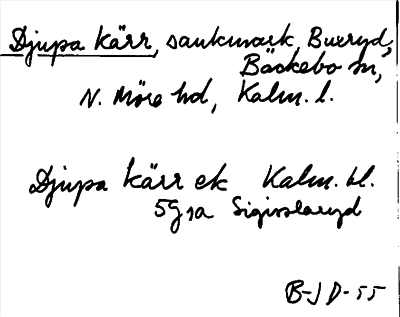 Djupa kärr, sankmark, Buxryd,
Bäckebo sn,
N. Möre hd, Kalm. l.
Djupa kärr ek Kalm. bl.
5G ja Sigisslaryd
B-J D-55